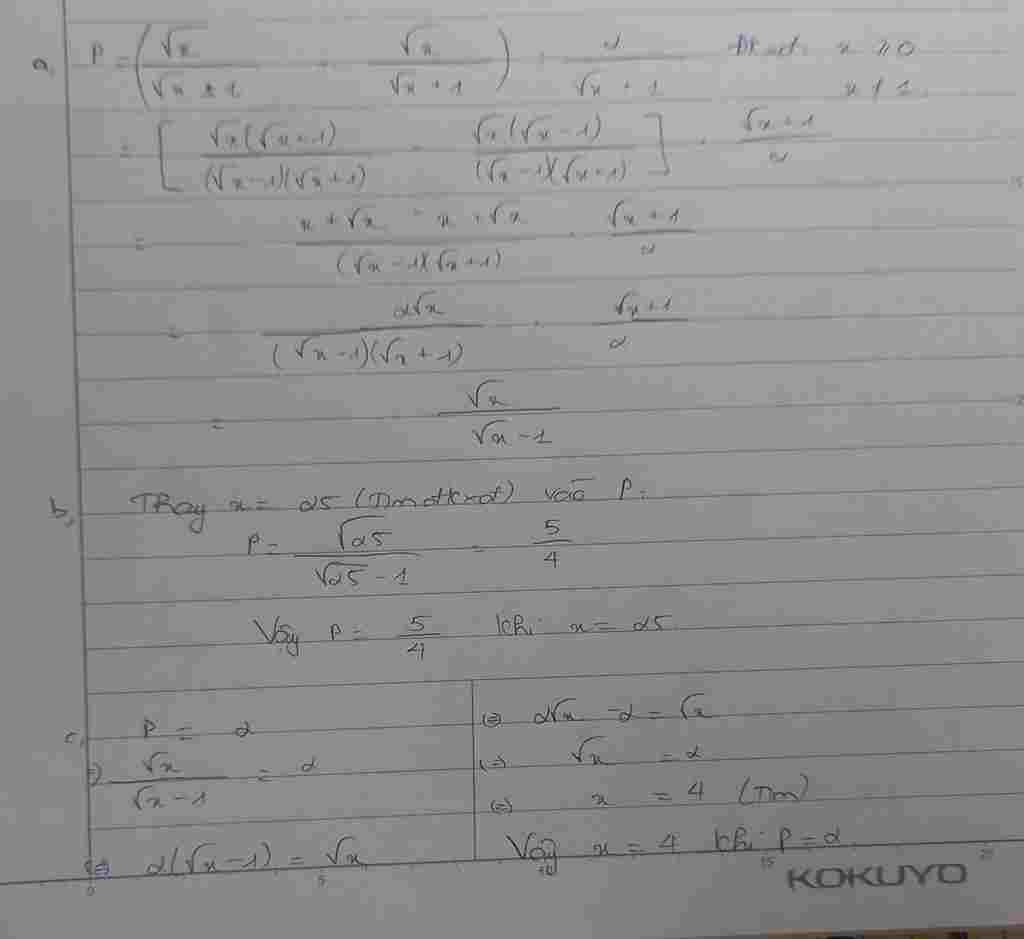 a, P = (√x/(√x ± 1) - √x/(√x + 1)) : 2/(√x + 1) Đkxđ: x ≥ 0
x ≠ 1
= [√x(√x+1)/((√x-1)(√x+1)) - √x(√x-1)/((√x-1)(√x+1))] . (√x+1)/2
= (x + √x - x + √x)/((√x-1)(√x+1)) . (√x+1)/2
= 2√x/((√x-1)(√x+1)) . (√x+1)/2
= √x/(√x-1)
b, Thay x = 25 (Tmđkxđ) vào P:
P = √25/(√25-1) = 5/4
Vậy P = 5/4 khi x = 25
c, P = 2
⇔ √x/(√x-1) = 2
⇔ 2(√x-1) = √x
⇔ 2√x - 2 = √x
⇔ √x = 2
⇔ x = 4 (Tm)
Vậy x = 4 khi P = 2
0 5 10 15 20
KOKUYO